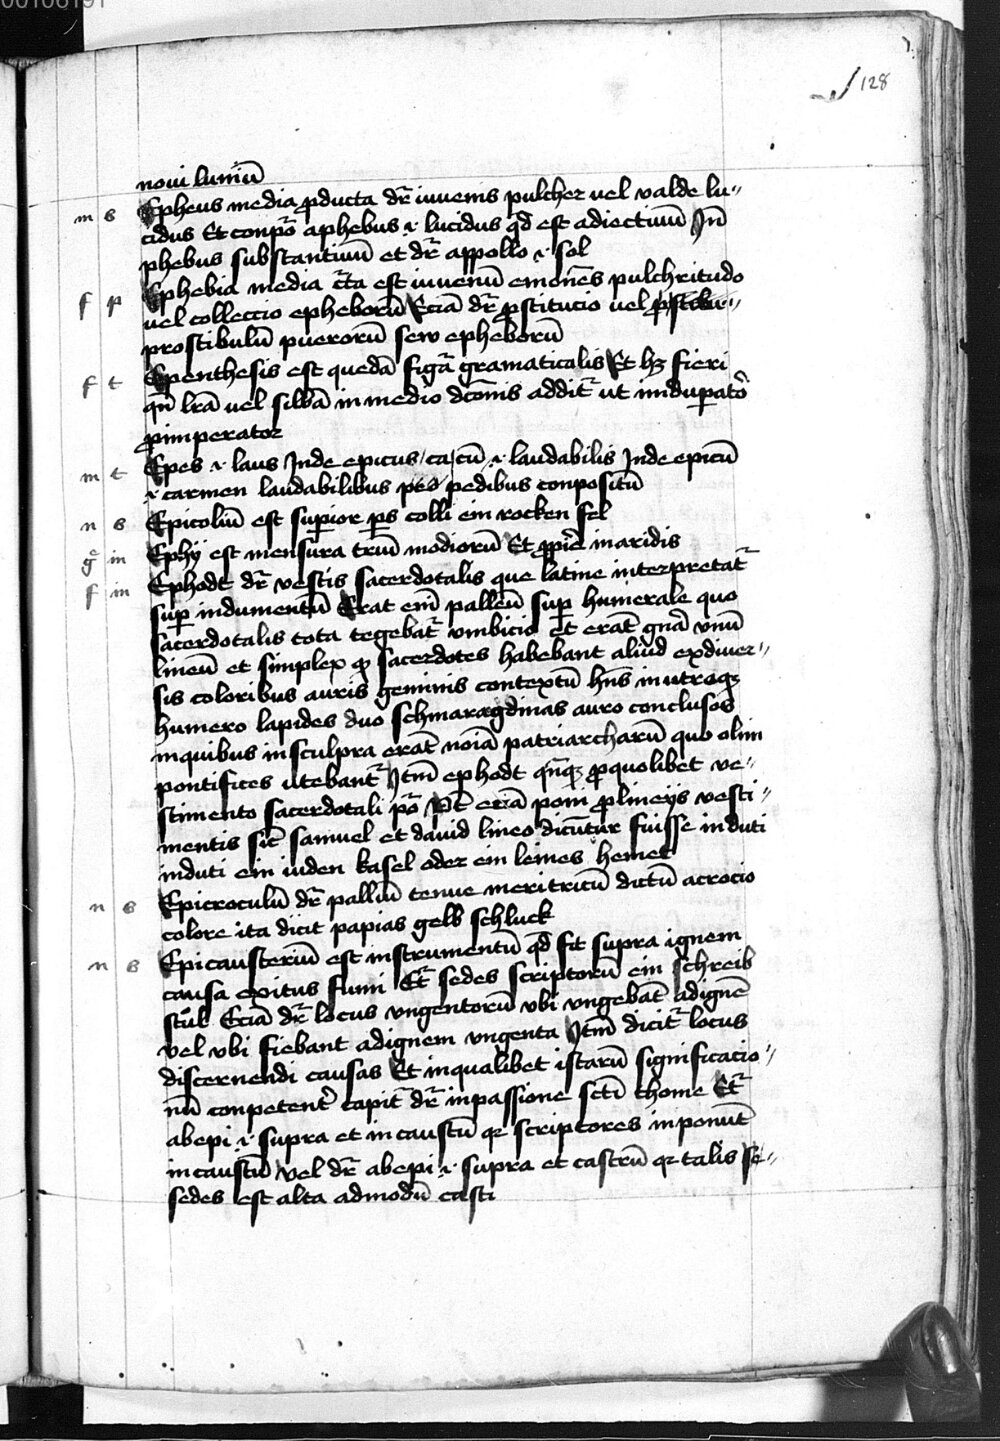 128
noui luniū
m s Epheus media ꝓducta dr̄ iuuenis pulcher uel valde lu〃
cidus Et conpōr aphebus .i. lucidus qd̄ est adiectiuū Jn̄
phebus substantiuū et dr̄ appollo .i. sol
f p Ephebia media cr̄ta est iuuenū emōnes pulchritudo
uel colleccio epheborū Eciā dr̄ ꝓstitucio uel
prostibulū puerorū sew epheborū
f t Epenthesis est quedā figā gramaticalis Et hꝫ fieri
qn̄ lrā uel silbā in medio dcōnis addit̄ ut induꝑatōr
ꝓimperator
m t Epes .i. laus Jnde epicus ca cū .i. laudabilis Jnde epicū
.i. carmen laudabilibus pes pedibus conpositū
n s Epicoliū est suꝑior ꝑs colli em rocken fel
g in Ephÿ est mensura triū modiorū Et ꝓprie maridis
f in Ephodt dr̄ vestis sacerdotalis que latine interpretat̄
suꝑ indumentū Erat eni̅ palleū suꝑ humerale quo
sacerdotalis tota tegebat̄ umbicio et erat gnā vnū
lineū et simplex ꝙ sacerdotes habebant aliud exdiuer〃
sis coloribus auris geminis contextū hn̄s in utroqꝫ
humero lapides duo schmaragdinas auro conclusos
inquibus insculpra erāt noīa patriarcharū quo olim
pontifices utebant̄ Jtm̄ ephodt qn̄qꝫ ꝓquolibet ve〃
stimento sacerdotali pō pt̄ eciā poni ꝓlineÿs vesti〃
mentis sic̄ samuel et dauid lineo dicūtur fuisse induti
induti ein iuden kasel oder ein leines hemet
n s Epicroculū dr̄ palliū tenue meritricū dictū acrocio
colore ita dicit papias gelb schluck
n s Epicausteriū est instrumentū qd̄ fit supra ignem
causa exitus fumi Et̄ sedes scriptorū ein schreib
stůl Eciā dr̄ locus vngentorū vbi vngebāt adignē
vel vbi fiebant adignem vngenta Jtm̄ dicit̄ locus
discernendi causas Et inqualibet istarū significatio〃
nū conpetent̄ capit̄ dr̄ inpassione sctī thome Et̄
abepi .i. supra et in caustū qꝛ scriptores inponūt
incaustū vel dr̄ abepi .i. supra et castrū qꝛ talis se〃
sedes est alta admodū casti